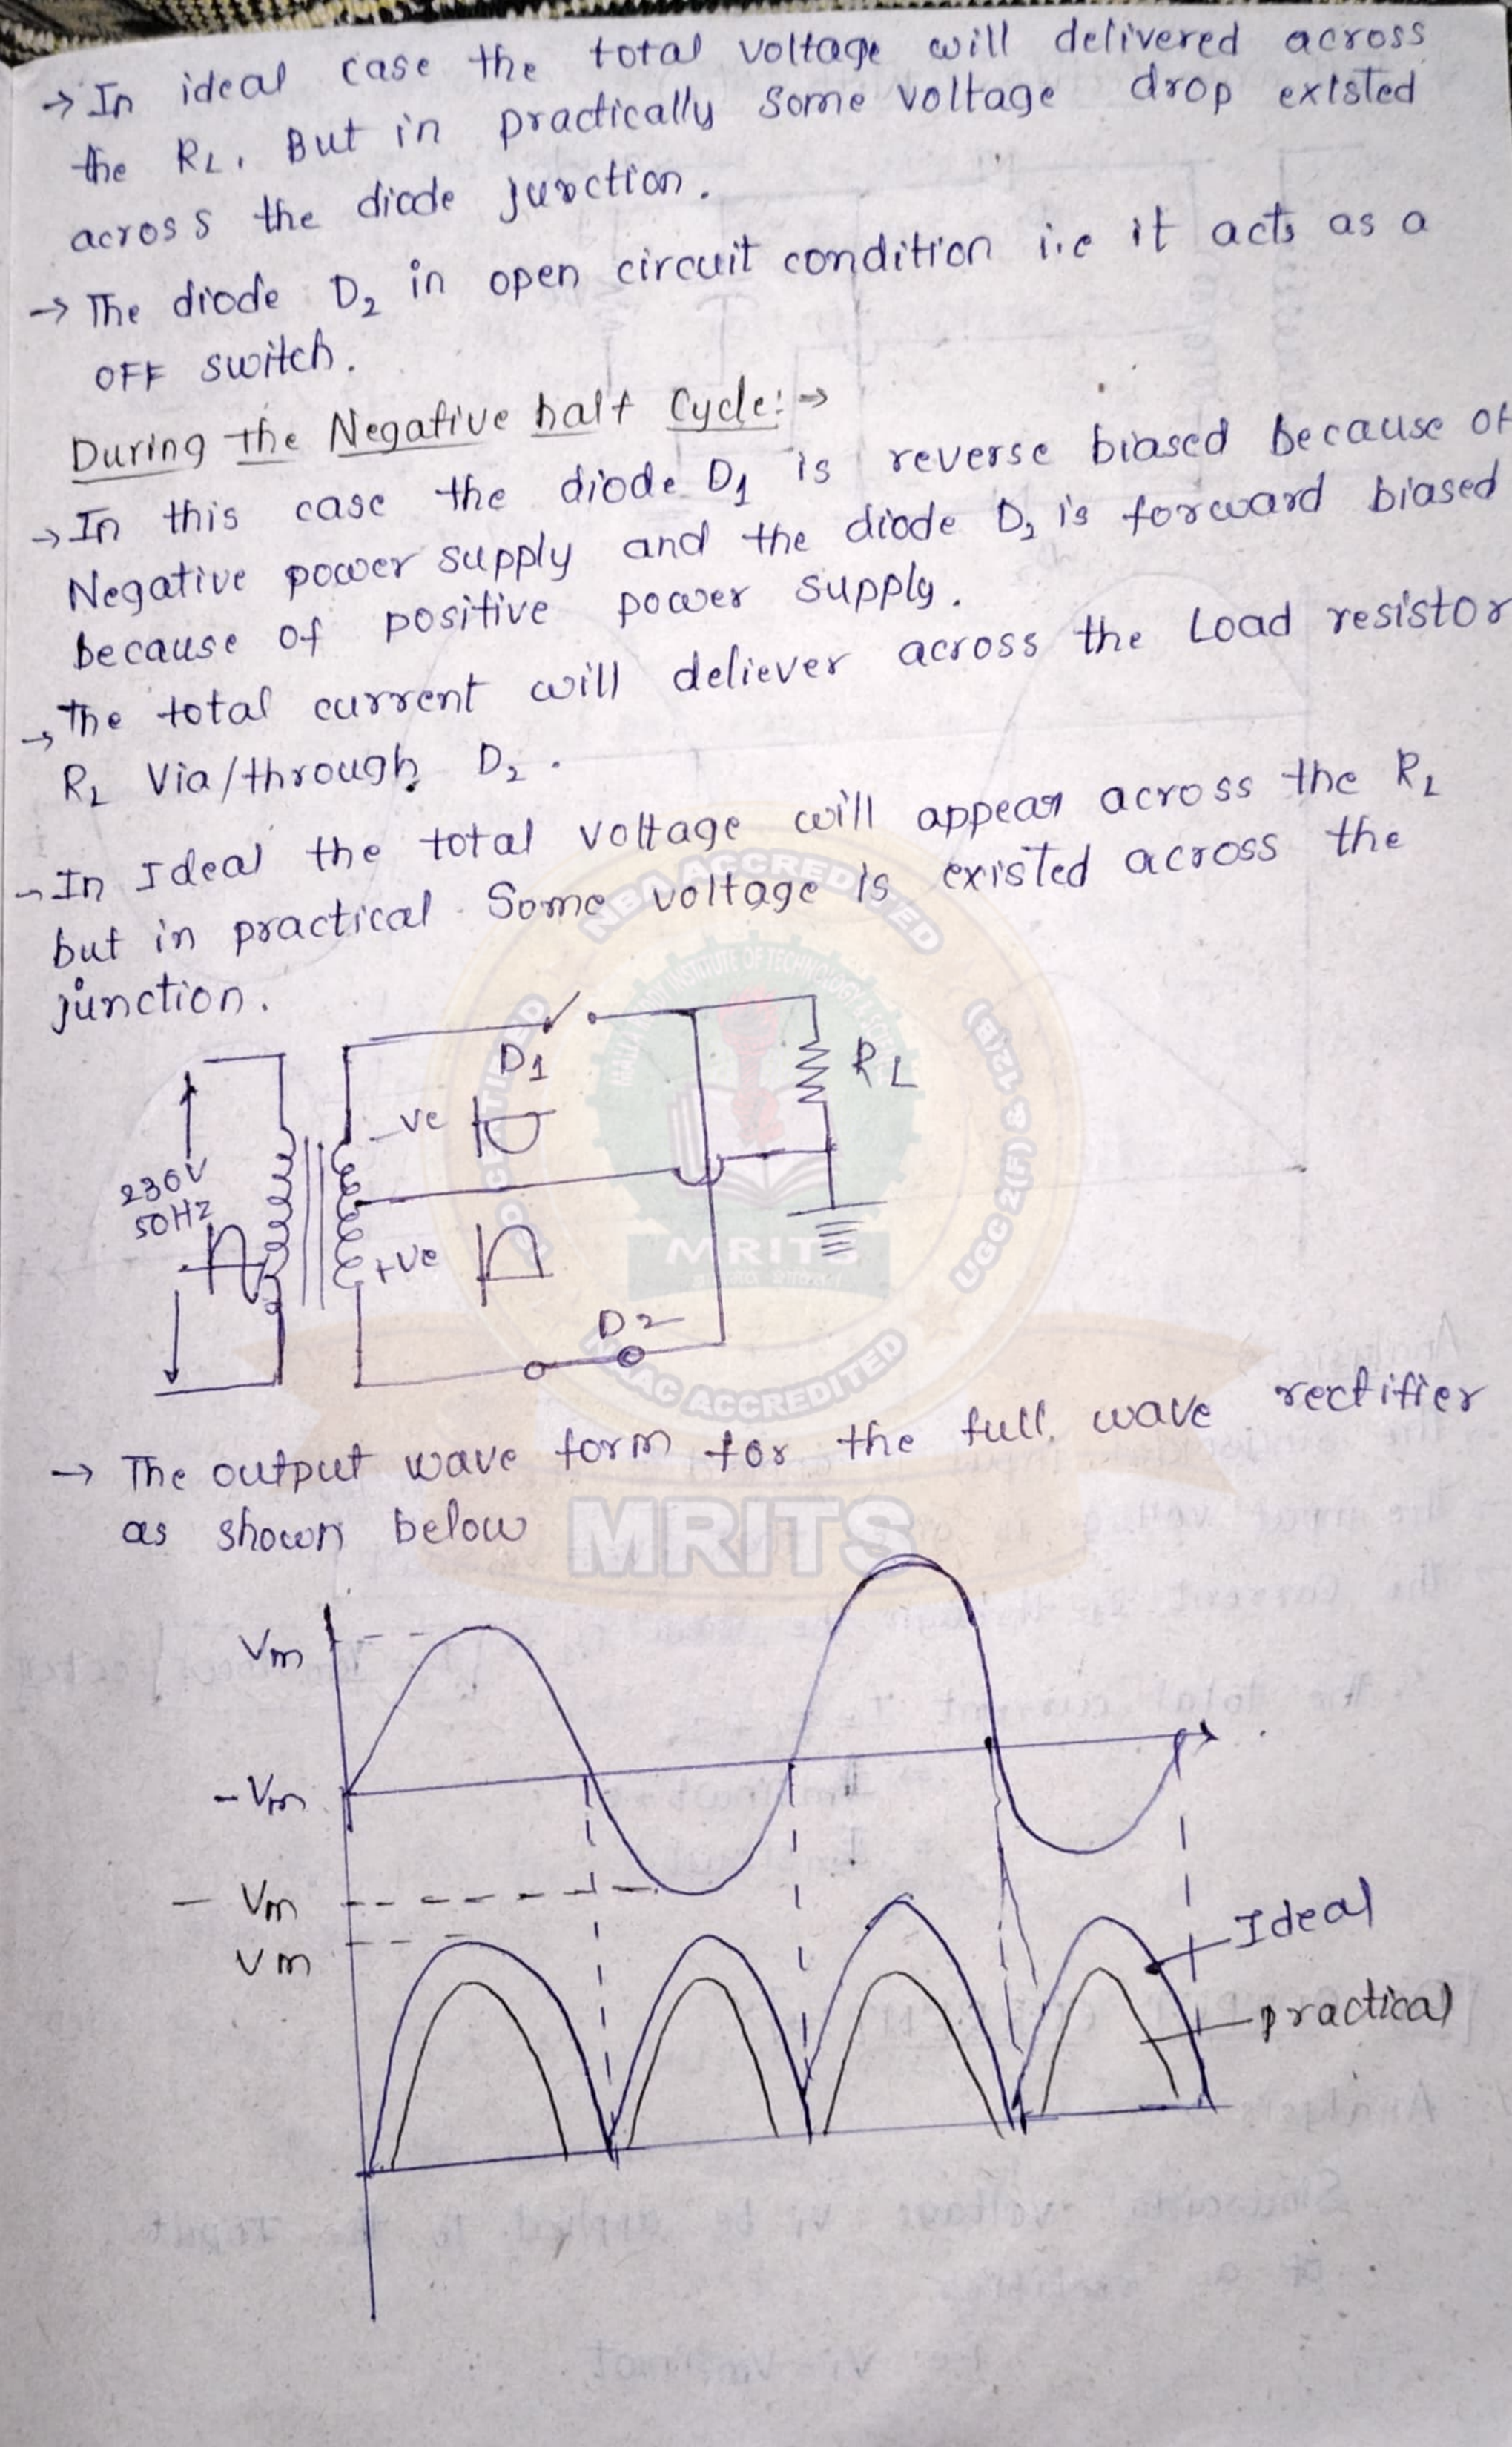 → In ideal case the total voltage will delivered across
the RL. But in practically some voltage drop existed
across the diode junction.
→ The diode D2 in open circuit condition i.e it acts as a
OFF switch.
During the Negative half Cycle: →
→ In this case the diode D1 is reverse biased because of
Negative power supply and the diode D2 is forward biased
because of positive power supply.
→ The total current will deliever across the Load resistor
RL Via/through D2.
→ In Ideal the total voltage will appear across the RL
but in practical some voltage is existed across the
junction.
D1
RL
-ve
230V
50Hz
+ve
D2
NBA ACCREDITED
INSTITUTE OF TECHNOLOGY &
UGC 2(F) & 12(B)
MRITS
NAAC ACCREDITED
→ The output wave form for the full wave rectifier
as shown below
MRITS
Vm
- Vm
- Vm
Vm
Ideal
practical